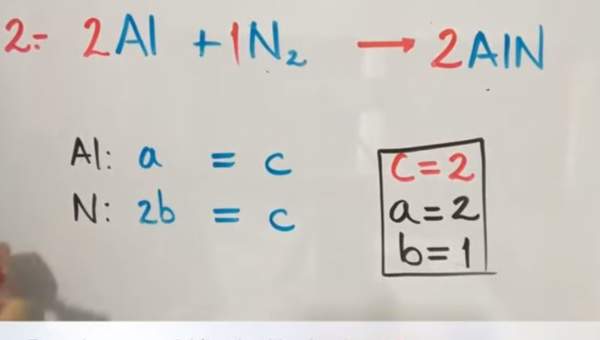 2.- 2Al + 1N₂ → 2AlN
Al: a = c
N: 2b = c
C=2
a=2
b=1